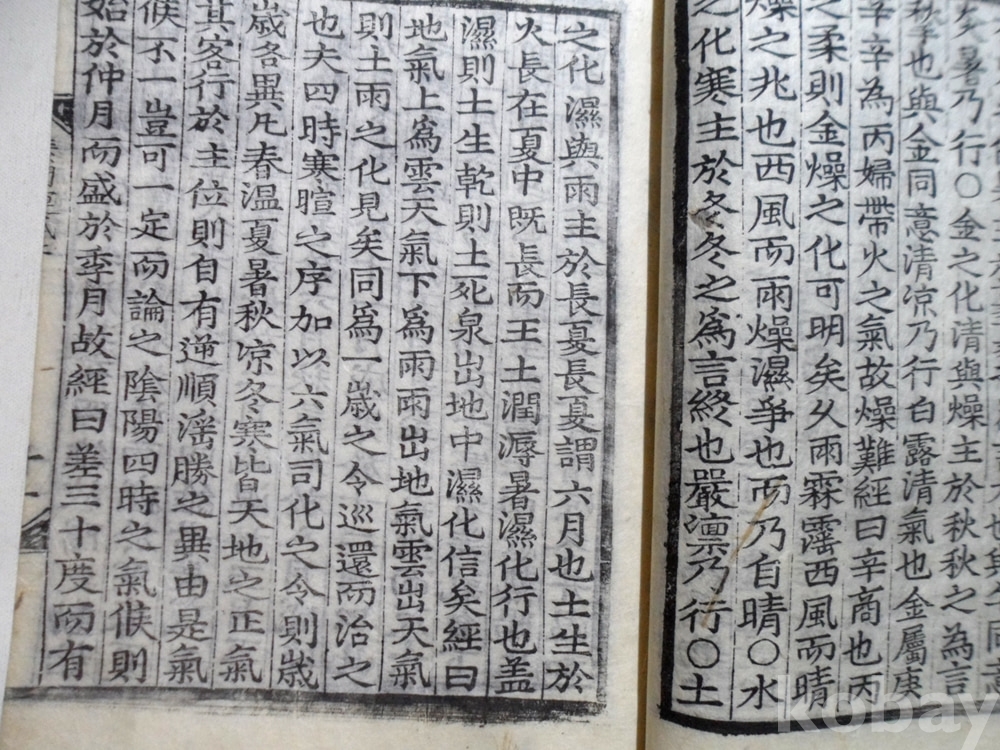 矣暑乃行○金之化清與燥主於秋秋之為言
秋孚也與金同意清凉乃行白露清氣也金屬庚
辛辛為丙婦帶火之氣故燥難經曰辛商也丙
之柔則金燥之化可明矣久雨霖霪西風而晴
燥之兆也西風而雨燥濕爭也而乃自晴○水
之化寒主於冬冬之為言終也嚴凛乃行○土
之化濕與雨主於長夏長夏謂六月也土生於
火長在夏中既長而王土潤溽暑濕化行也盖
濕則土生乾則土死泉出地中濕化信矣經曰
地氣上為雲天氣下為雨雨出地氣雲出天氣
則土雨之化見矣同為一歲之令巡還而治之
也夫四時寒暄之序加以六氣司化之令則歲
歲各異凡春温夏暑秋凉冬寒皆天地之正氣
其客行於主位則自有逆順淫勝之異由是氣
候不一豈可一定而論之陰陽四時之氣候則
始於仲月而盛於季月故經曰差三十度而有
kobay